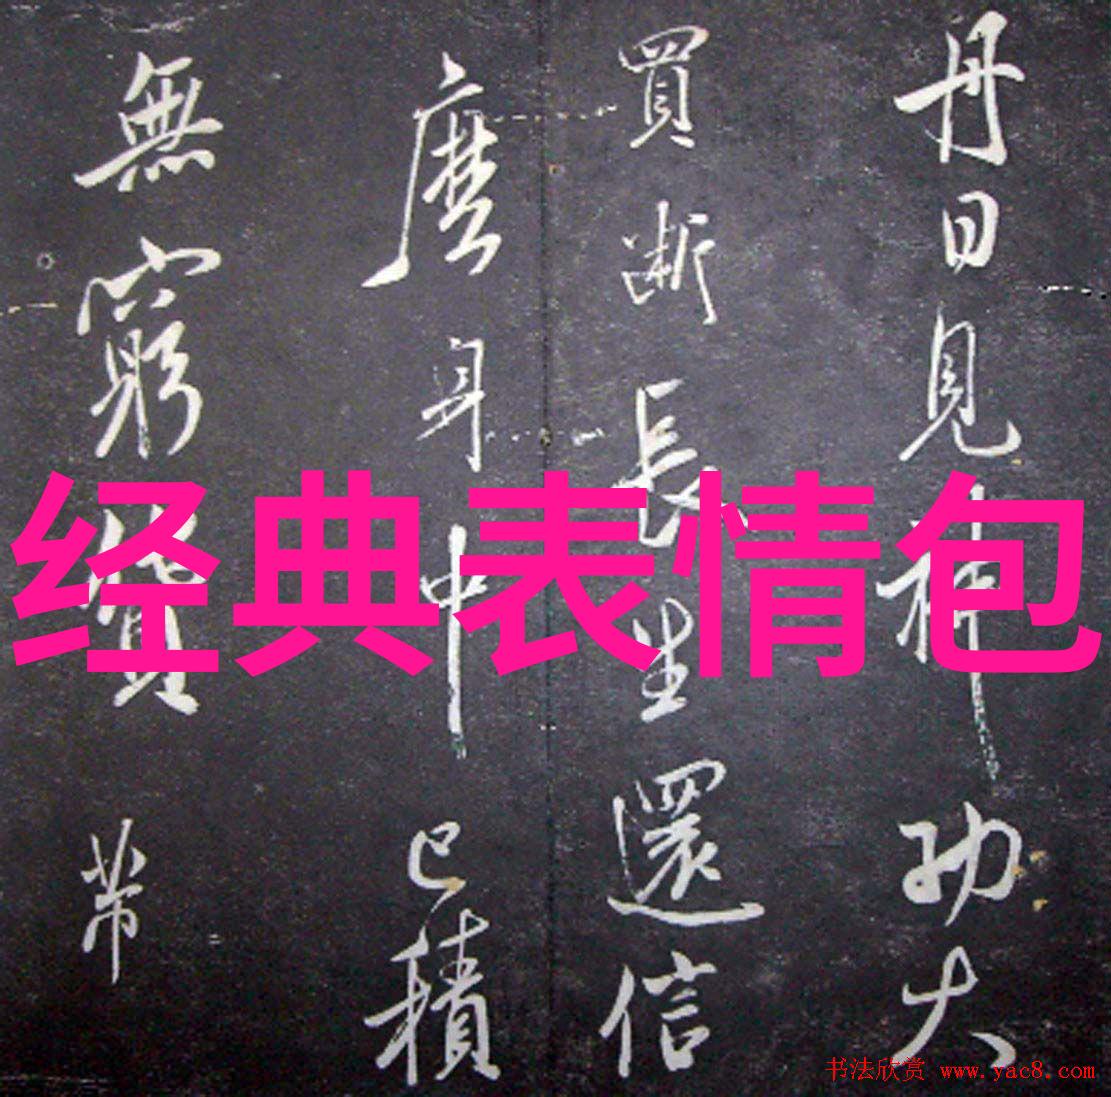 丹日見神功大
買断長生還信
麽身中已積
無窮貨芾
经典表情包
书法欣赏 www.yac8.com